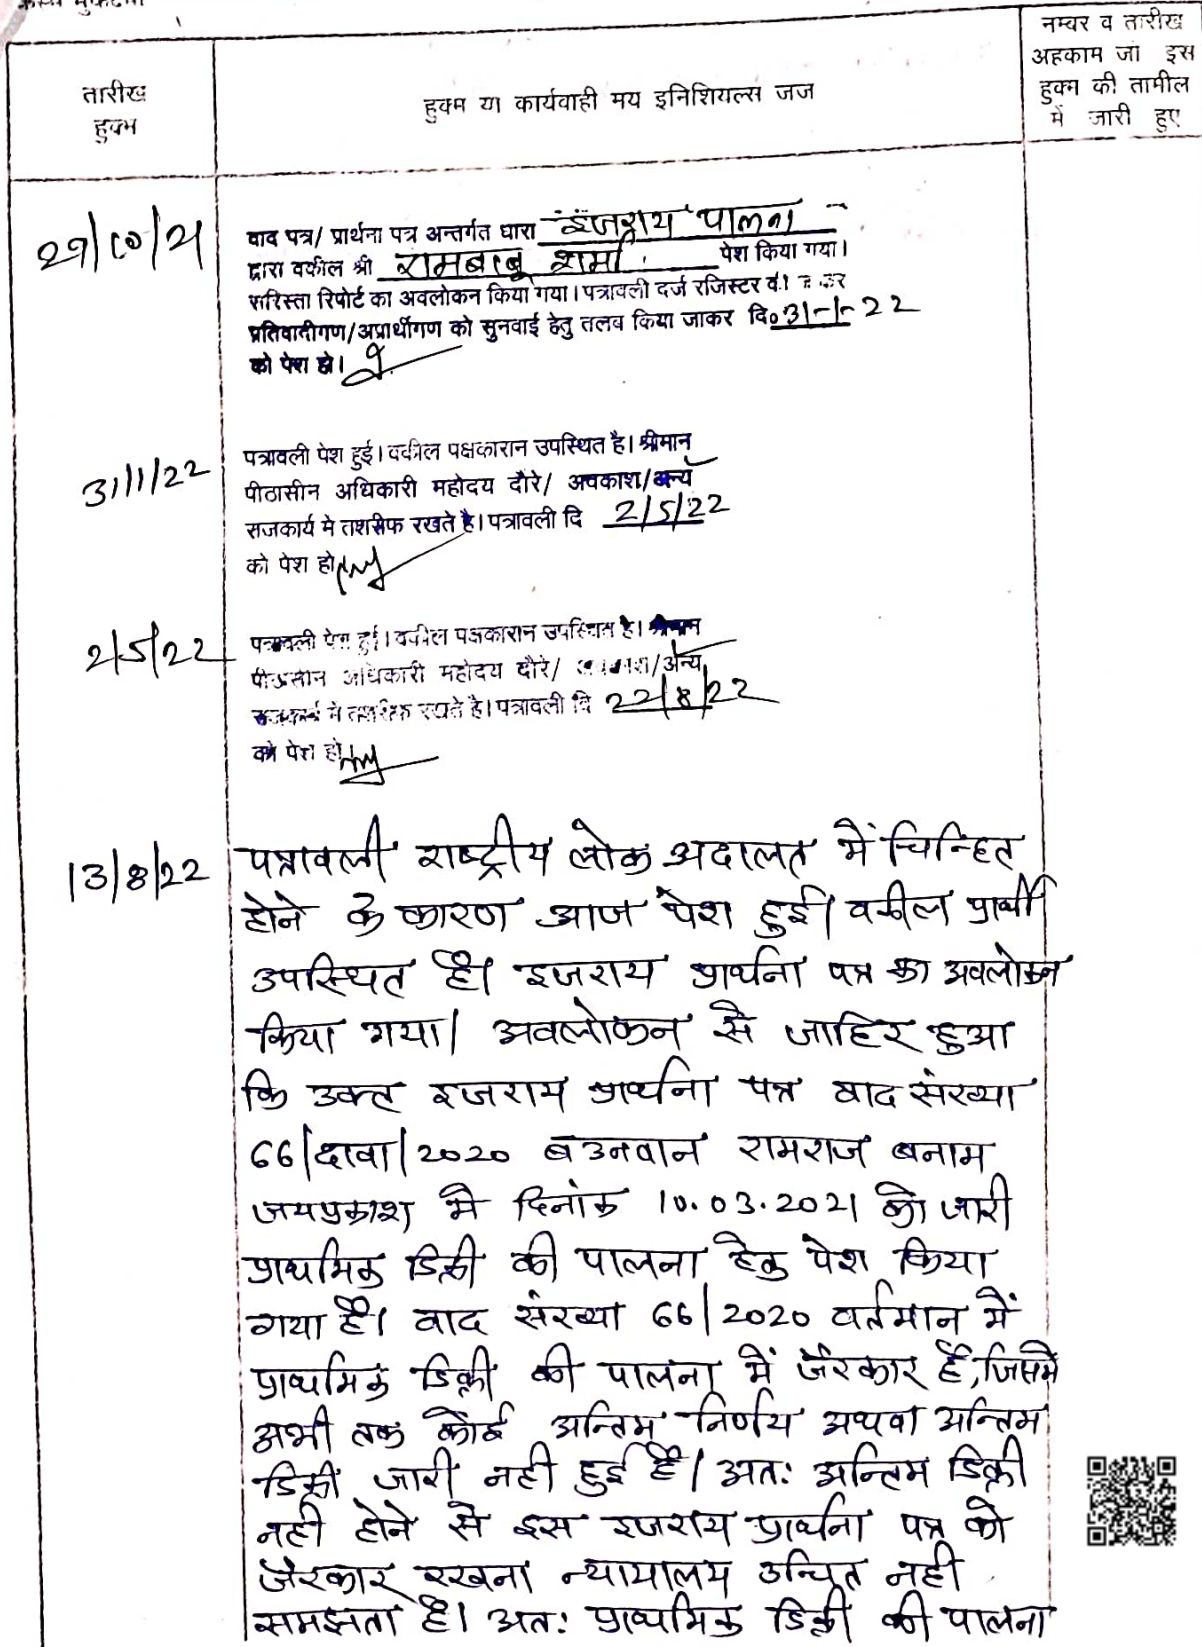 नम्बर व तारीख
अहकाम जो इस
हुक्म की तामील
में जारी हुए
तारीख
हुक्म
हुक्म या कार्यवाही मय इनिशियल्स जज
29/10/21
वाद पत्र/ प्रार्थना पत्र अन्तर्गत धारा इजराय पालना
द्वारा वकील श्री रामबाबू शर्मा पेश किया गया।
सरिस्ता रिपोर्ट का अवलोकन किया गया। पत्रावली दर्ज रजिस्टर
प्रतिवादीगण/अप्रार्थीगण को सुनवाई हेतु तलब किया जाकर दि० 31-1-22
को पेश हो।
31/1/22
पत्रावली पेश हुई। वकील पक्षकारान उपस्थित है। श्रीमान
पीठासीन अधिकारी महोदय दौरे/ अवकाश/अन्य
राजकार्य मे तशरीफ रखते है। पत्रावली दि 2/5/22
को पेश हो
2/5/22
पत्रावली पेश हुई। वकील पक्षकारान उपस्थित है। श्रीमान
पीठासीन अधिकारी महोदय दौरे/ अवकाश/अन्य
राजकार्य मे तशरीफ रखते है। पत्रावली दि 22/8/22
को पेश हो
13/8/22
पत्रावली राष्ट्रीय लोक अदालत में चिन्हित
होने के कारण आज पेश हुई। वकील प्रार्थी
उपस्थित है। इजराय प्रार्थना पत्र का अवलोकन
किया गया। अवलोकन से जाहिर हुआ
कि उक्त इजराय प्रार्थना पत्र वाद संख्या
66/दावा/2020 बउनवान रामराज बनाम
जयप्रकाश मे दिनांक 10.03.2021 को जारी
प्राथमिक डिक्री की पालना हेतु पेश किया
गया है। वाद संख्या 66/2020 वर्तमान में
प्राथमिक डिक्री की पालना में जैरकार है, जिसमे
अभी तक कोई अन्तिम निर्णय अथवा अन्तिम
डिक्री जारी नही हुई है। अतः अन्तिम डिक्री
नही होने से इस इजराय प्रार्थना पत्र को
जैरकार रखना न्यायालय उचित नही
समझता है। अतः प्राथमिक डिक्री की पालना